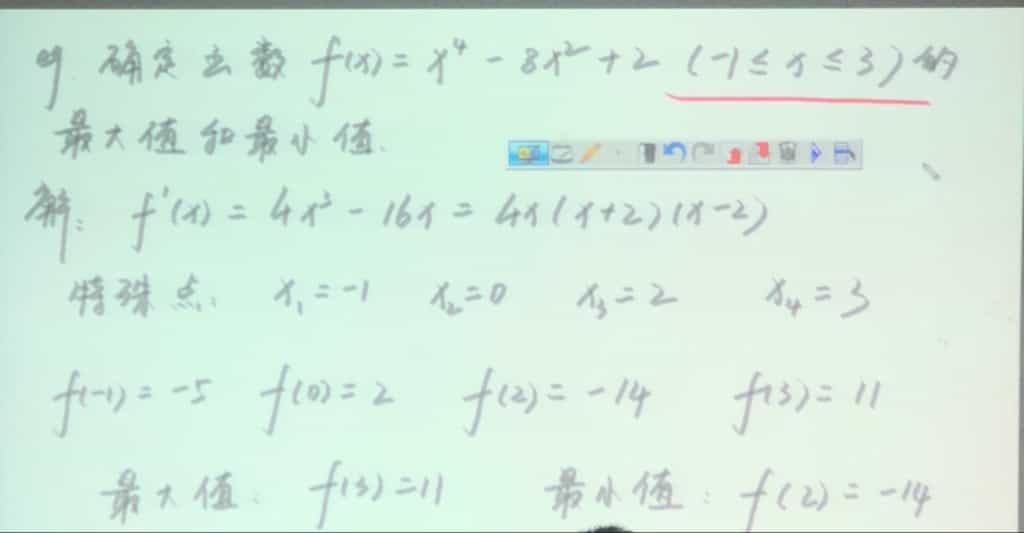 例 确定函数 f(x) = x⁴ - 8x² + 2 (-1 ≤ x ≤ 3) 的
最大值和最小值.
解: f'(x) = 4x³ - 16x = 4x(x+2)(x-2)
特殊点: x₁ = -1 x₂ = 0 x₃ = 2 x₄ = 3
f(-1) = -5 f(0) = 2 f(2) = -14 f(3) = 11
最大值: f(3) = 11 最小值: f(2) = -14